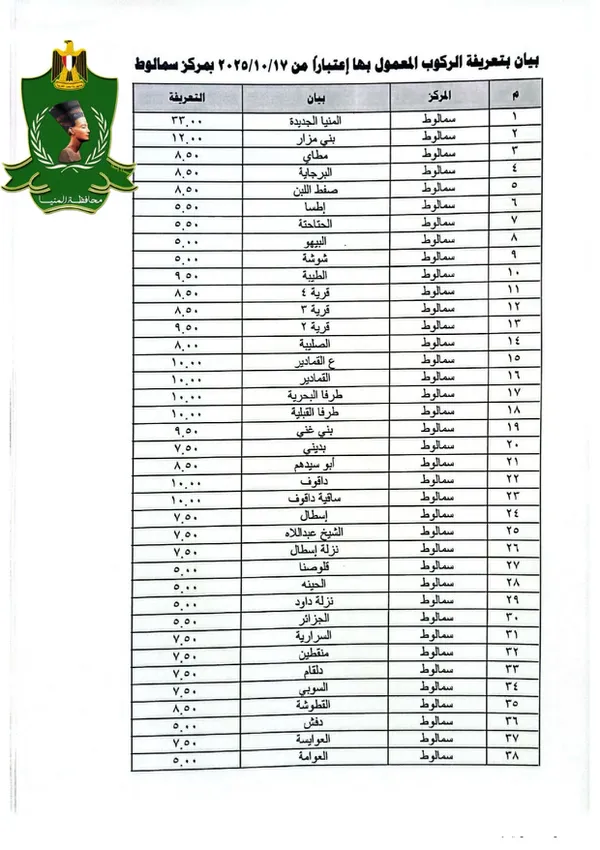 محافظة المنيا
بيان بتعريفة الركوب المعمول بها إعتباراً من ٢٠٢٥/١٠/١٧ بمركز سمالوط
م المركز بيان التعريفة
١ سمالوط المنيا الجديدة ٣٣,٠٠
٢ سمالوط بني مزار ١٢,٠٠
٣ سمالوط مطاي ٨,٥٠
٤ سمالوط البرجاية ٨,٥٠
٥ سمالوط صفط اللبن ٨,٥٠
٦ سمالوط إطسا ٥,٥٠
٧ سمالوط الحتاحتة ٥,٥٠
٨ سمالوط البيهو ٥,٠٠
٩ سمالوط شوشة ٥,٠٠
١٠ سمالوط الطيبة ٩,٥٠
١١ سمالوط قرية ٤ ٨,٥٠
١٢ سمالوط قرية ٣ ٨,٥٠
١٣ سمالوط قرية ٢ ٩,٥٠
١٤ سمالوط الصليبة ٨,٠٠
١٥ سمالوط ع القمادير ١٠,٠٠
١٦ سمالوط القمادير ١٠,٠٠
١٧ سمالوط طرفا البحرية ١٠,٠٠
١٨ سمالوط طرفا القبلية ١٠,٠٠
١٩ سمالوط بني غني ٩,٥٠
٢٠ سمالوط بديني ٧,٥٠
٢١ سمالوط أبو سيدهم ٨,٥٠
٢٢ سمالوط داقوف ١٠,٠٠
٢٣ سمالوط ساقية داقوف ١٠,٠٠
٢٤ سمالوط إسطال ٧,٥٠
٢٥ سمالوط الشيخ عبداللاه ٧,٥٠
٢٦ سمالوط نزلة إسطال ٧,٥٠
٢٧ سمالوط قلوصنا ٥,٠٠
٢٨ سمالوط الحينه ٥,٠٠
٢٩ سمالوط نزلة داود ٥,٠٠
٣٠ سمالوط الجزائر ٥,٥٠
٣١ سمالوط السرارية ٧,٥٠
٣٢ سمالوط منقطين ٧,٥٠
٣٣ سمالوط دلقام ٧,٥٠
٣٤ سمالوط السوبي ٧,٥٠
٣٥ سمالوط القطوشة ٨,٥٠
٣٦ سمالوط دفش ٥,٠٠
٣٧ سمالوط العوايسة ٧,٥٠
٣٨ سمالوط العوامة ٥,٠٠